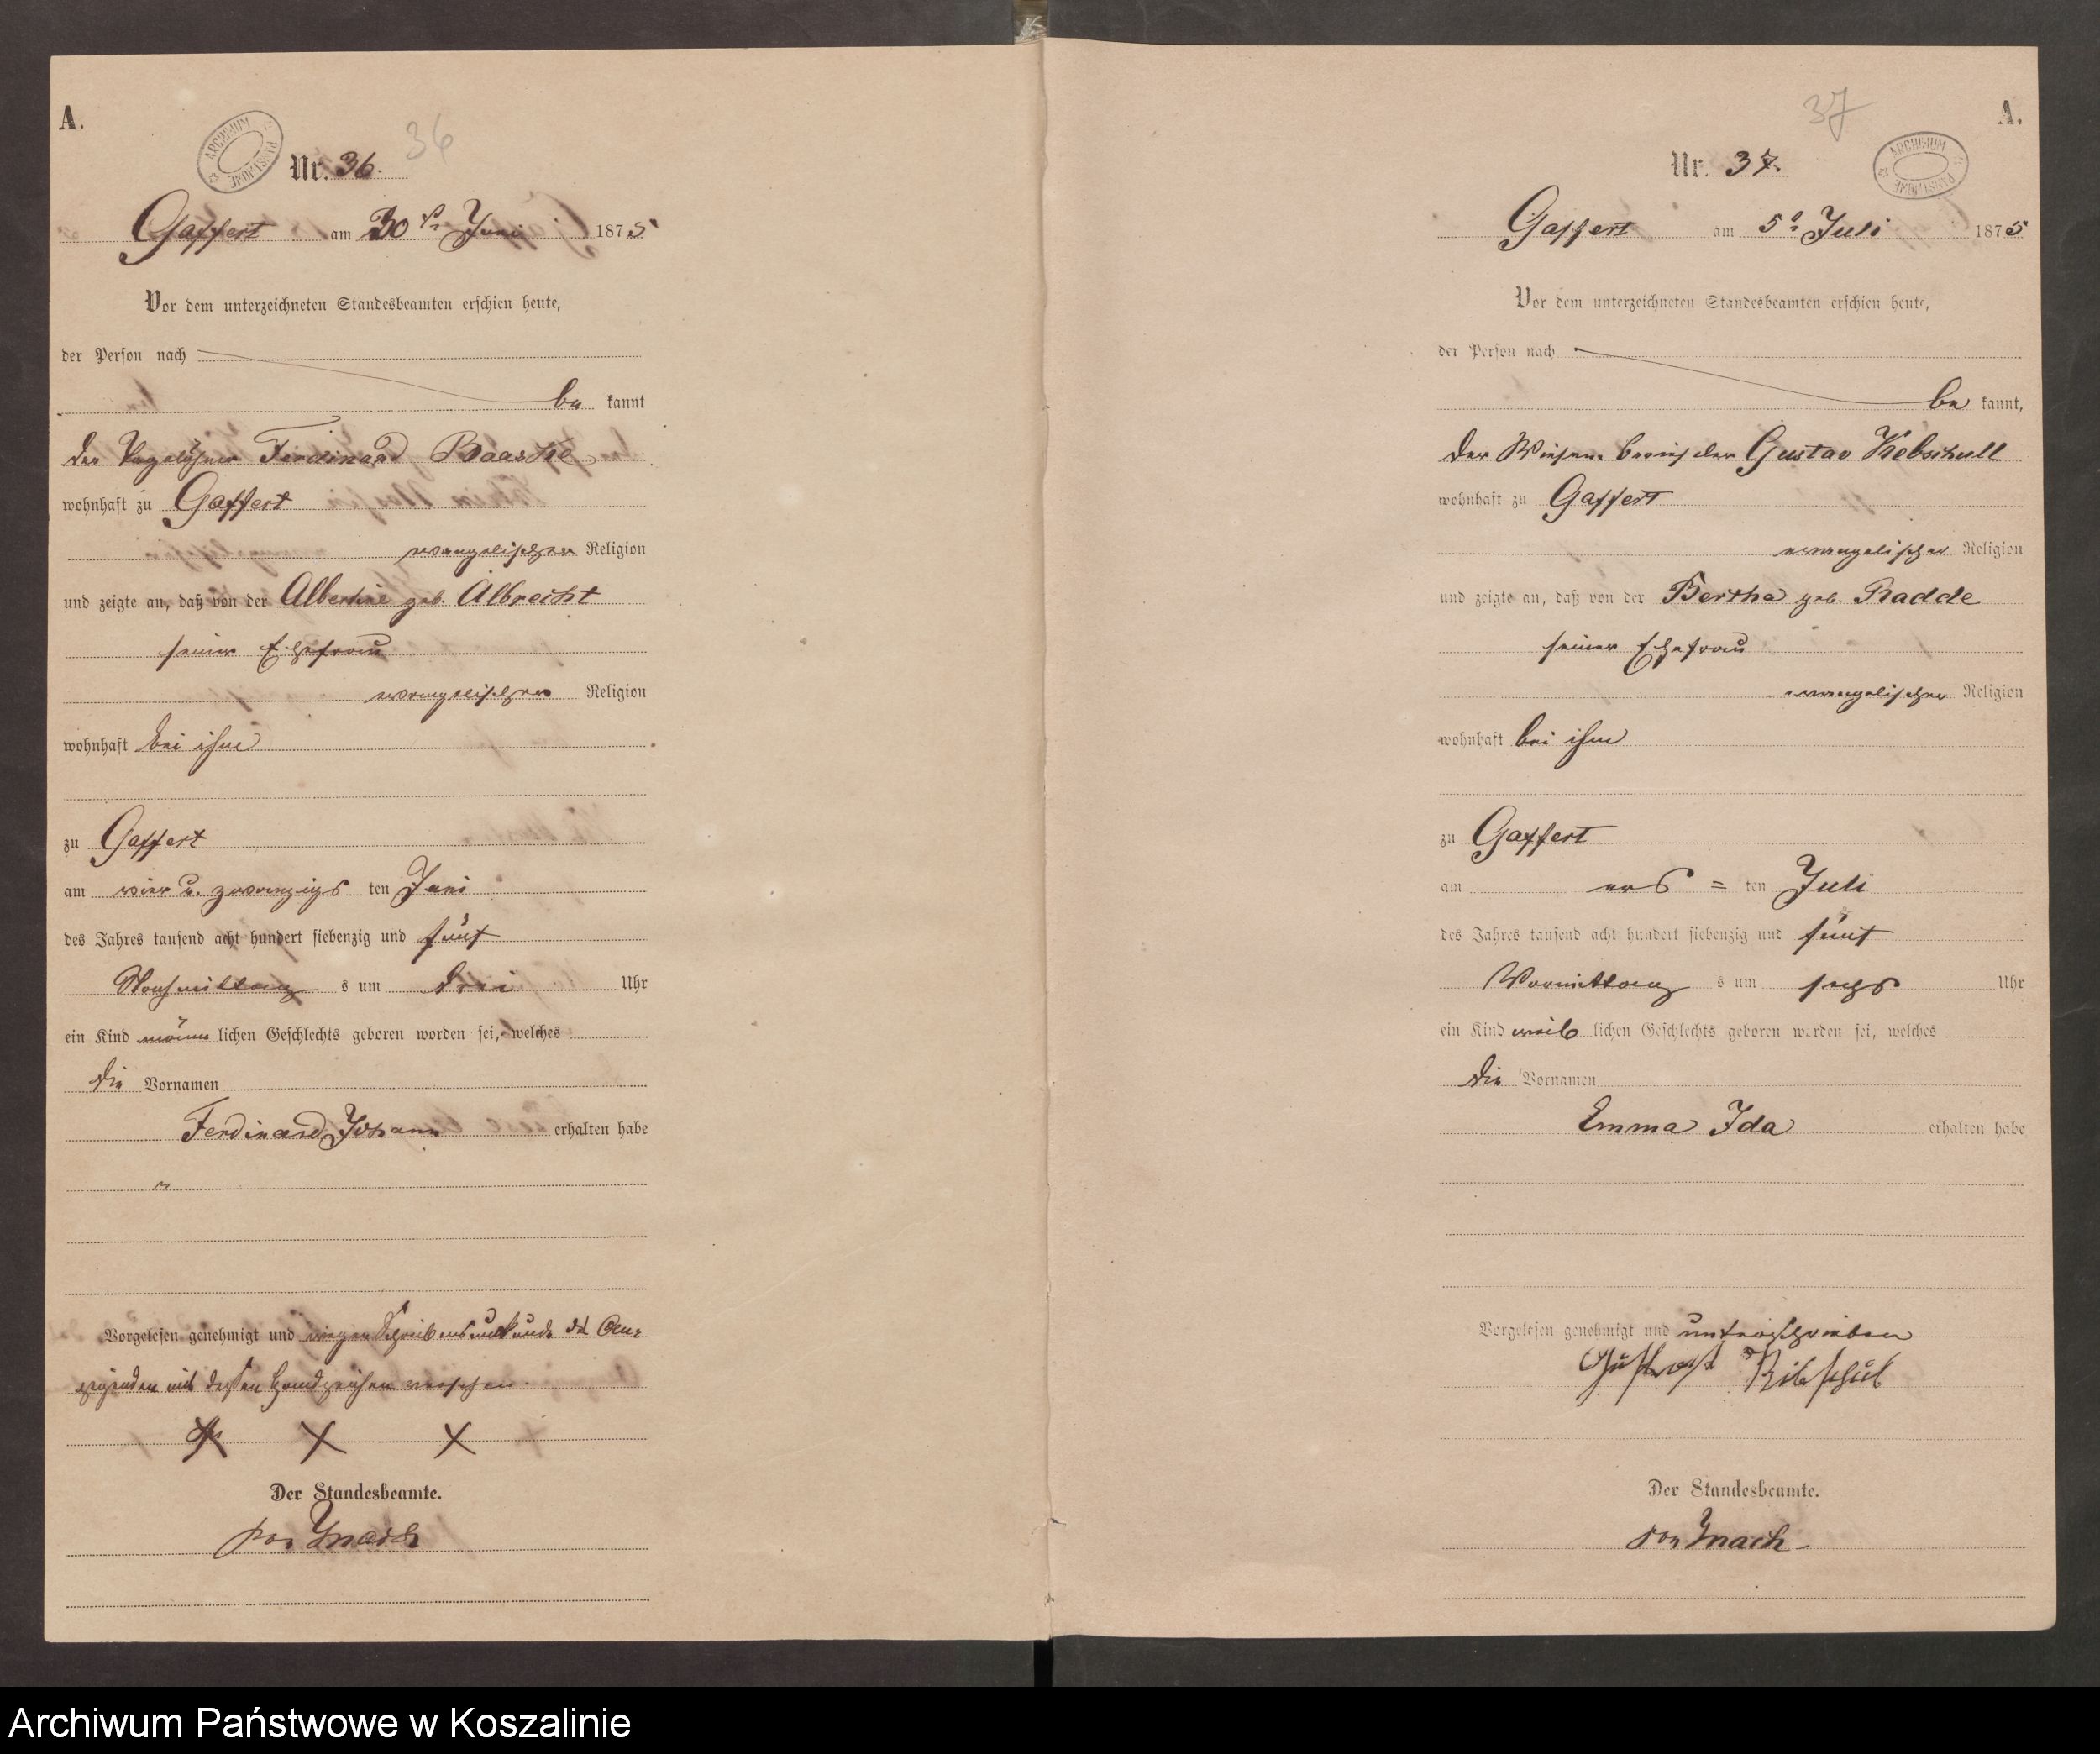 A.
ARCHIWUM PAŃSTWOWE
36
Nr. 36.
Gaffert am 30 Juni 1875
Vor dem unterzeichneten Standesbeamten erschien heute,
der Person nach
be kannt
der Tagelöhner Ferdinand Baaske
wohnhaft zu Gaffert
evangelischer Religion
und zeigte an, daß von der Albertine geb. Albrecht
seiner Ehefrau
evangelischer Religion
wohnhaft bei ihm
zu Gaffert
am vier u. zwanzigs ten Juni
des Jahres tausend acht hundert siebenzig und fünf
Nachmittag s um drei Uhr
ein Kind männ lichen Geschlechts geboren worden sei, welches
die Vornamen
Ferdinand Johann erhalten habe
Vorgelesen genehmigt und wegen Schreibensunkunde des An-
zeigenden mit dessen Handzeichen versehen.
X X X
Der Standesbeamte.
von Zmach
37
A.
ARCHIWUM PAŃSTWOWE
Nr. 37.
Gaffert am 5t Juli 1875
Vor dem unterzeichneten Standesbeamten erschien heute,
der Person nach
be kannt,
der Wiesen Gustav Kebschull
wohnhaft zu Gaffert
evangelischer Religion
und zeigte an, daß von der Bertha geb. Radde
seiner Ehefrau
evangelischer Religion
wohnhaft bei ihm
zu Gaffert
am ers = ten Juli
des Jahres tausend acht hundert siebenzig und fünf
Vormittag s um sechs Uhr
ein Kind weib lichen Geschlechts geboren worden sei, welches
die Vornamen
Emma Ida erhalten habe
Vorgelesen genehmigt und unterschrieben
Gustaf Kibschul
Der Standesbeamte.
von Zmach
Archiwum Państwowe w Koszalinie